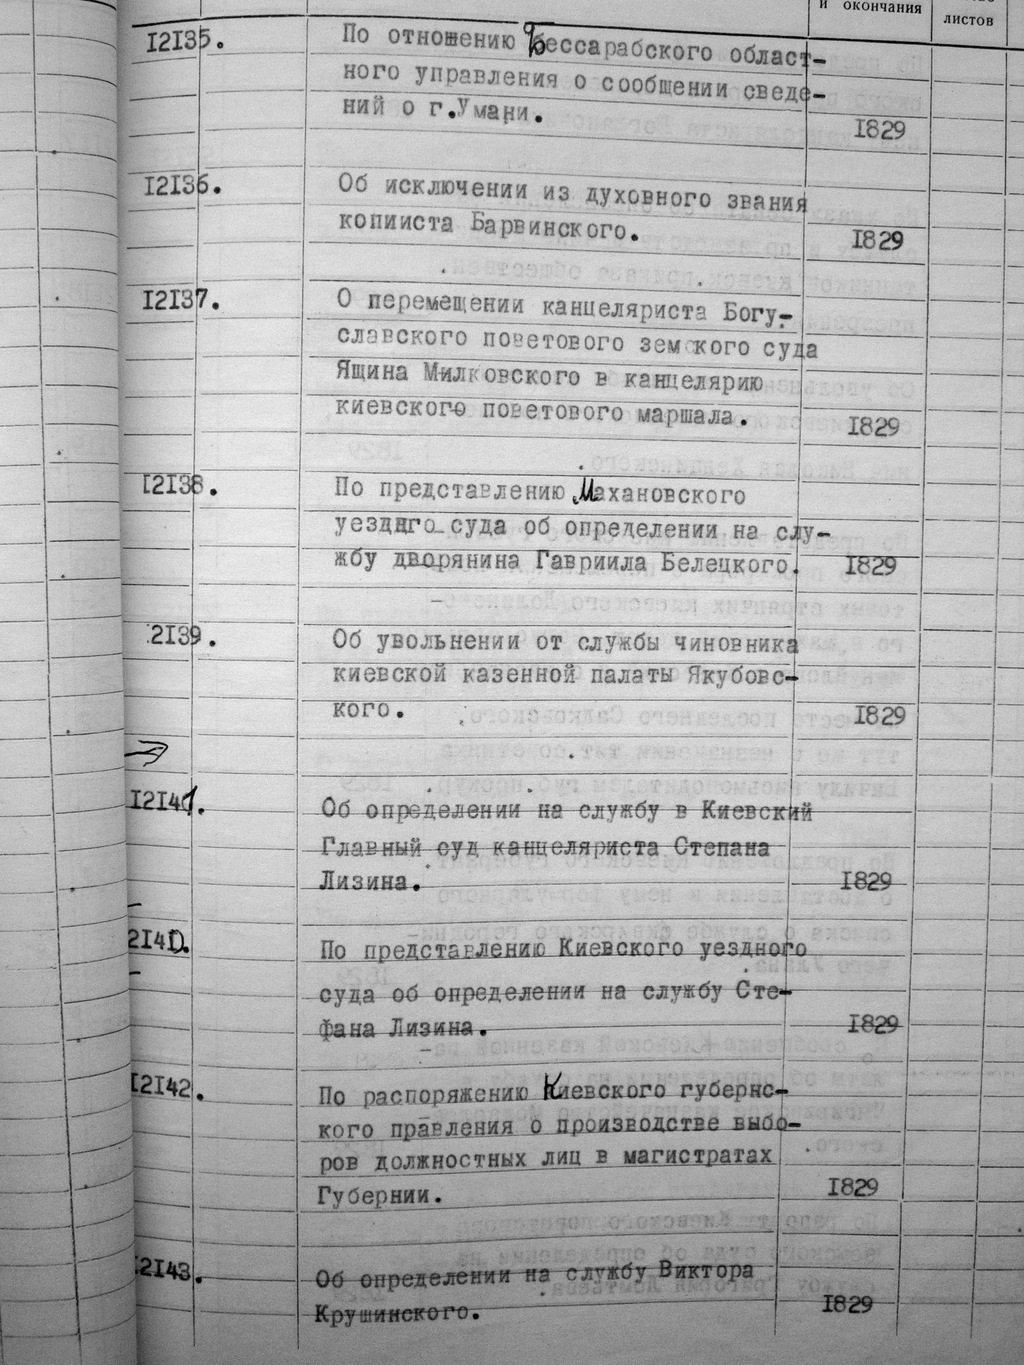 и окончания
листов
12135. По отношению бессарабского област-
ного управления о сообщении сведе-
ний о г.Умани. 1829
12136. Об исключении из духовного звания
копииста Барвинского. 1829
12137. О перемещении канцеляриста Богу-
славского поветового земского суда
Ящина Милковского в канцелярию
киевского поветового маршала. 1829
12138. По представлению Махановского
уездного суда об определении на слу-
жбу дворянина Гавриила Белецкого. 1829
2139. Об увольнении от службы чиновника
киевской казенной палаты Якубовс-
кого. 1829
Об определении на службу в Киевский
Главный суд канцеляриста Степана
Лизина. 1829
По представлению Киевского уездного
суда об определении на службу Сте-
фана Лизина. 1829
12142. По распоряжению Киевского губернс-
кого правления о производстве выбо-
ров должностных лиц в магистратах
Губернии. 1829
12143. Об определении на службу Виктора
Крушинского. 1829